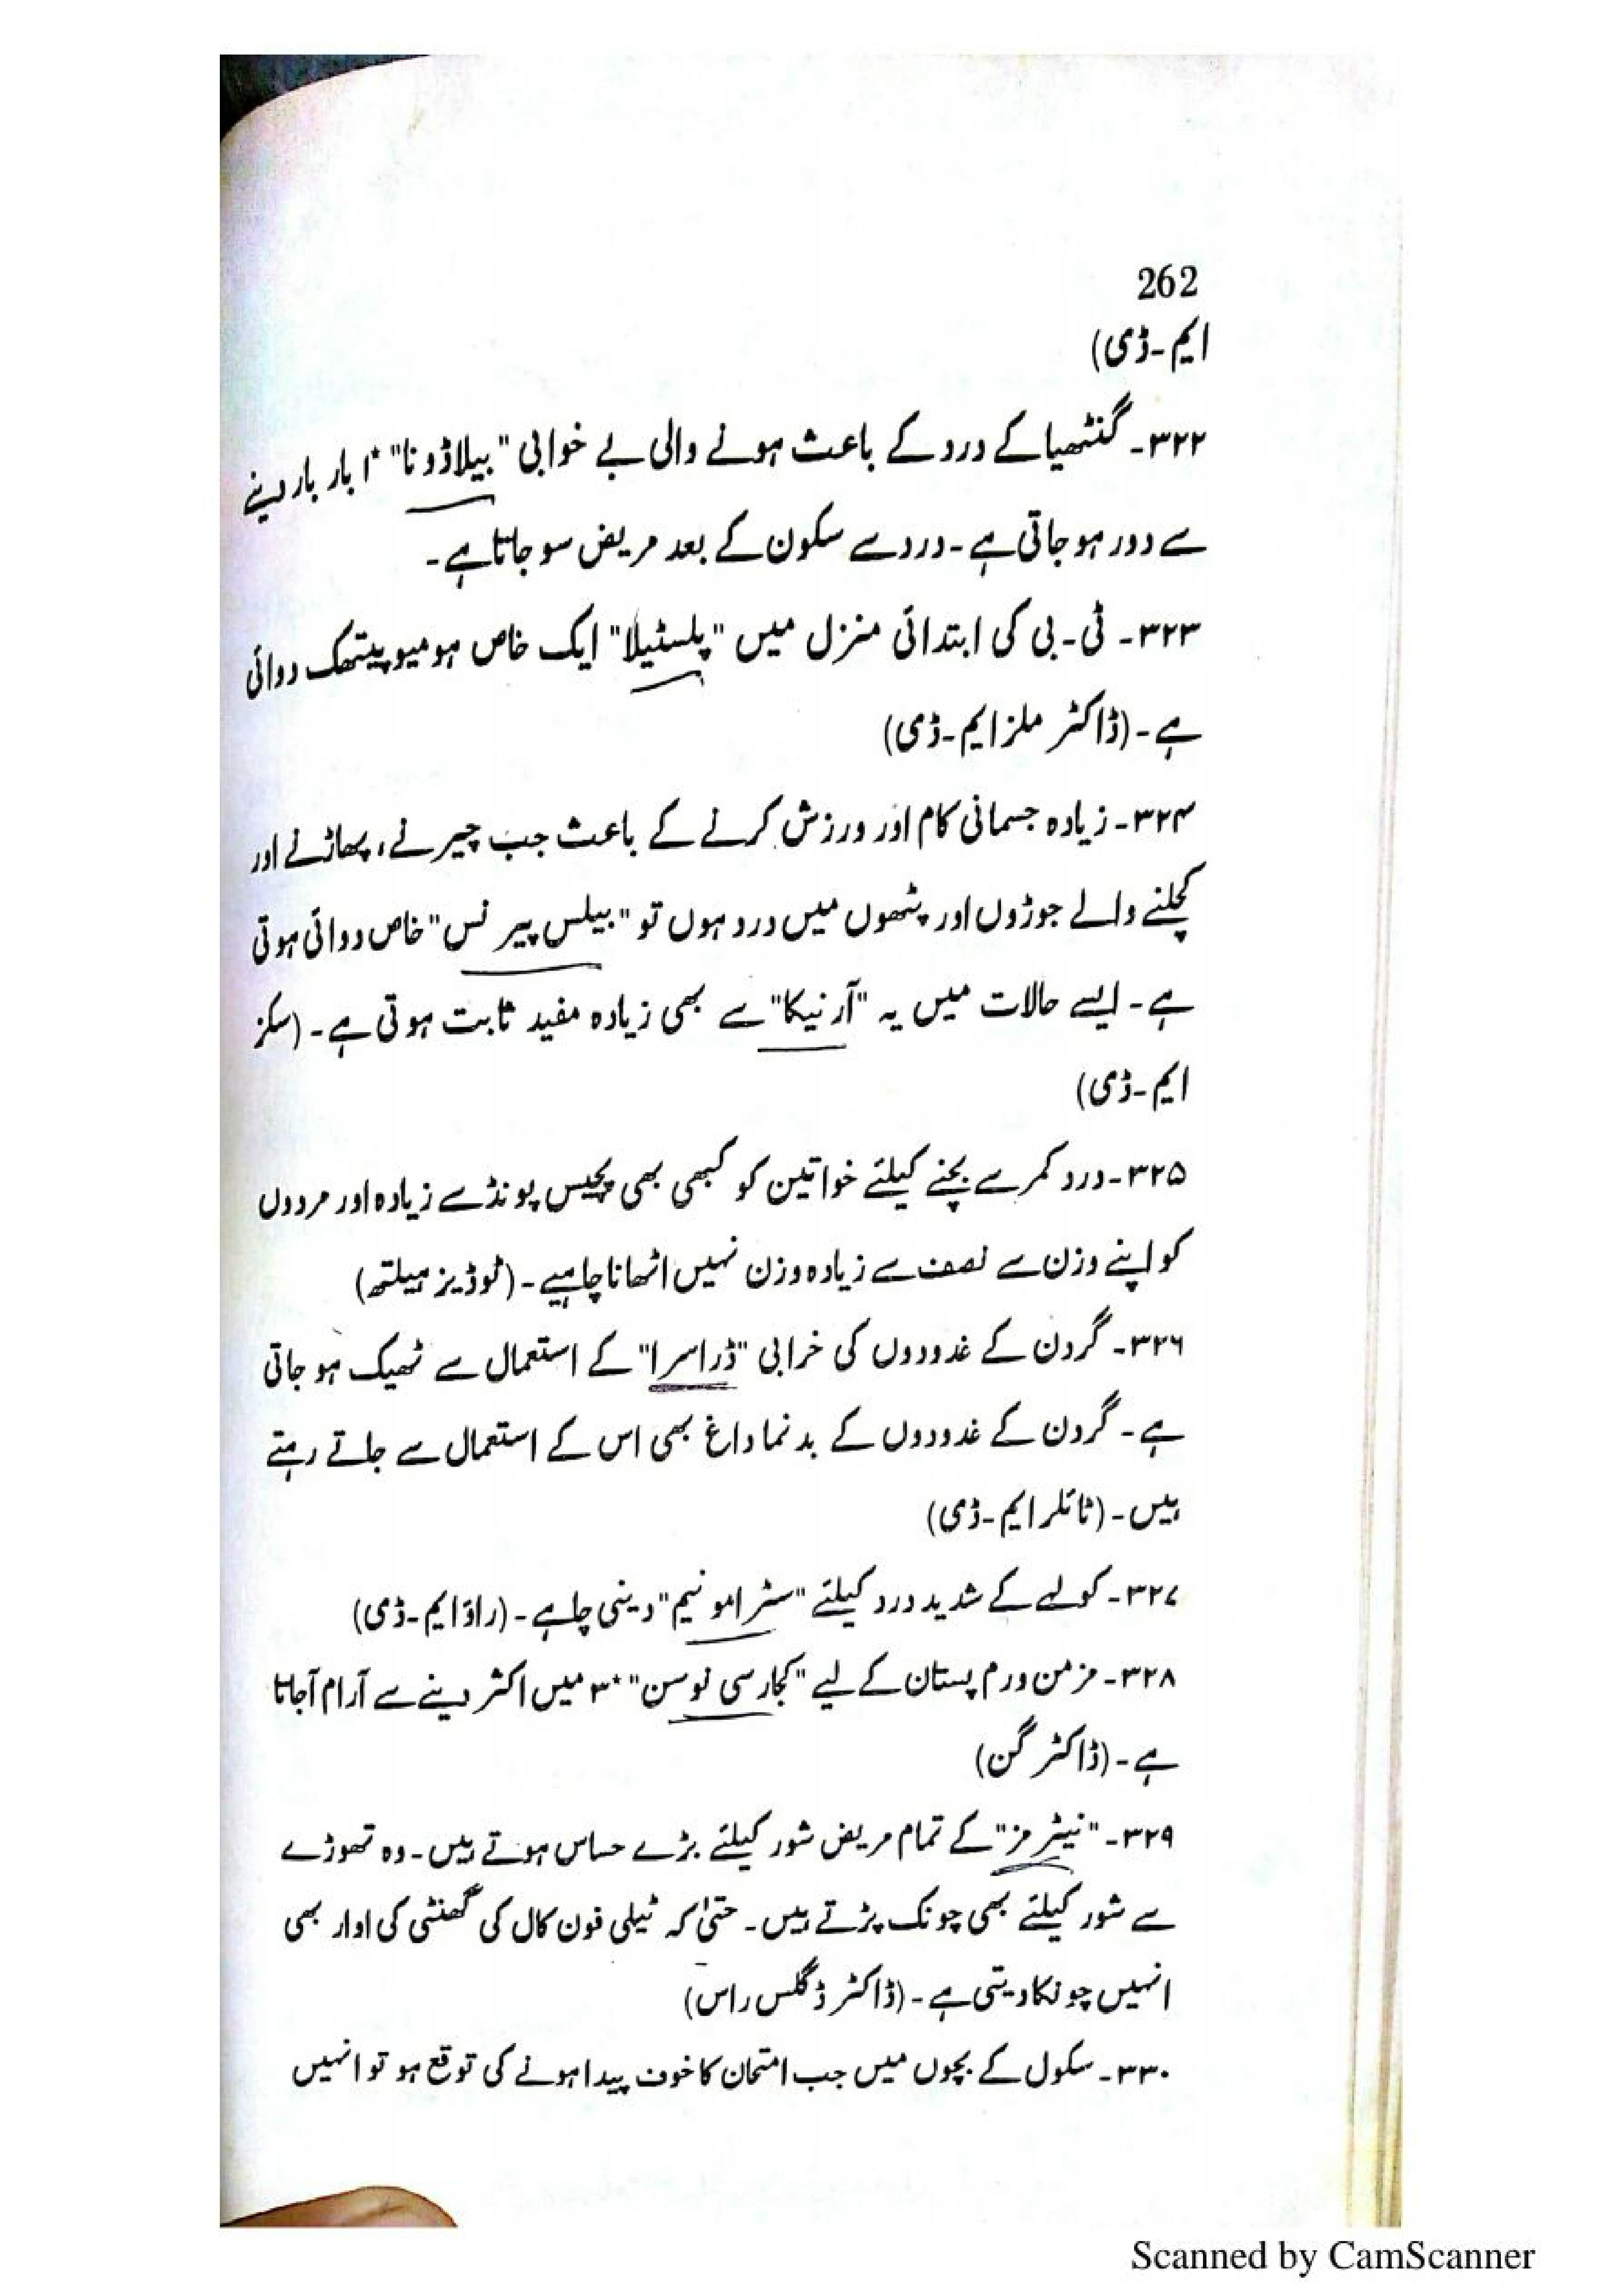 262
ایم-ڈی)
۳۲۲- گنٹھیا کے درد کے باعث ہونے والی بے خوابی "بیلاڈونا" *۱ بار بار دینے
سے دور ہو جاتی ہے- درد سے سکون کے بعد مریض سو جاتا ہے-
۳۲۳- ٹی-بی کی ابتدائی منزل میں "پلسٹیلا" ایک خاص ہومیوپیتھک دوائی
ہے- (ڈاکٹر ملز ایم-ڈی)
۳۲۴- زیادہ جسمانی کام اور ورزش کرنے کے باعث جب چیرنے، پھاڑنے اور
کچلنے والے جوڑوں اور پٹھوں میں درد ہوں تو "بیلس پیرنس" خاص دوائی ہوتی
ہے- ایسے حالات میں یہ "آرنیکا" سے بھی زیادہ مفید ثابت ہوتی ہے- (سکز
ایم-ڈی)
۳۲۵- درد کمر سے بچنے کیلئے خواتین کو کبھی بھی پچیس پونڈ سے زیادہ اور مردوں
کو اپنے وزن سے نصف سے زیادہ وزن نہیں اٹھانا چاہیے- (ٹوڈیز ہیلتھ)
۳۲۶- گردن کے غدودوں کی خرابی "ڈراسرا" کے استعمال سے ٹھیک ہو جاتی
ہے- گردن کے غدودوں کے بدنما داغ بھی اس کے استعمال سے جاتے رہتے
ہیں- (ٹائلر ایم-ڈی)
۳۲۷- کولہے کے شدید درد کیلئے "سٹرامونیم" دینی چاہے- (راؤ ایم-ڈی)
۳۲۸- مزمن ورم پستان کے لیے "کجارسی نوسن" *۳ میں اکثر دینے سے آرام آجاتا
ہے- (ڈاکٹر گن)
۳۲۹- "نیٹرمز" کے تمام مریض شور کیلئے بڑے حساس ہوتے ہیں- وہ تھوڑے
سے شور کیلئے بھی چونک پڑتے ہیں- حتیٰ کہ ٹیلی فون کال کی گھنٹی کی اوار بھی
انہیں چونکا دیتی ہے- (ڈاکٹر ڈگلس راس)
۳۳۰- سکول کے بچوں میں جب امتحان کا خوف پیدا ہونے کی توقع ہو تو انہیں
Scanned by CamScanner